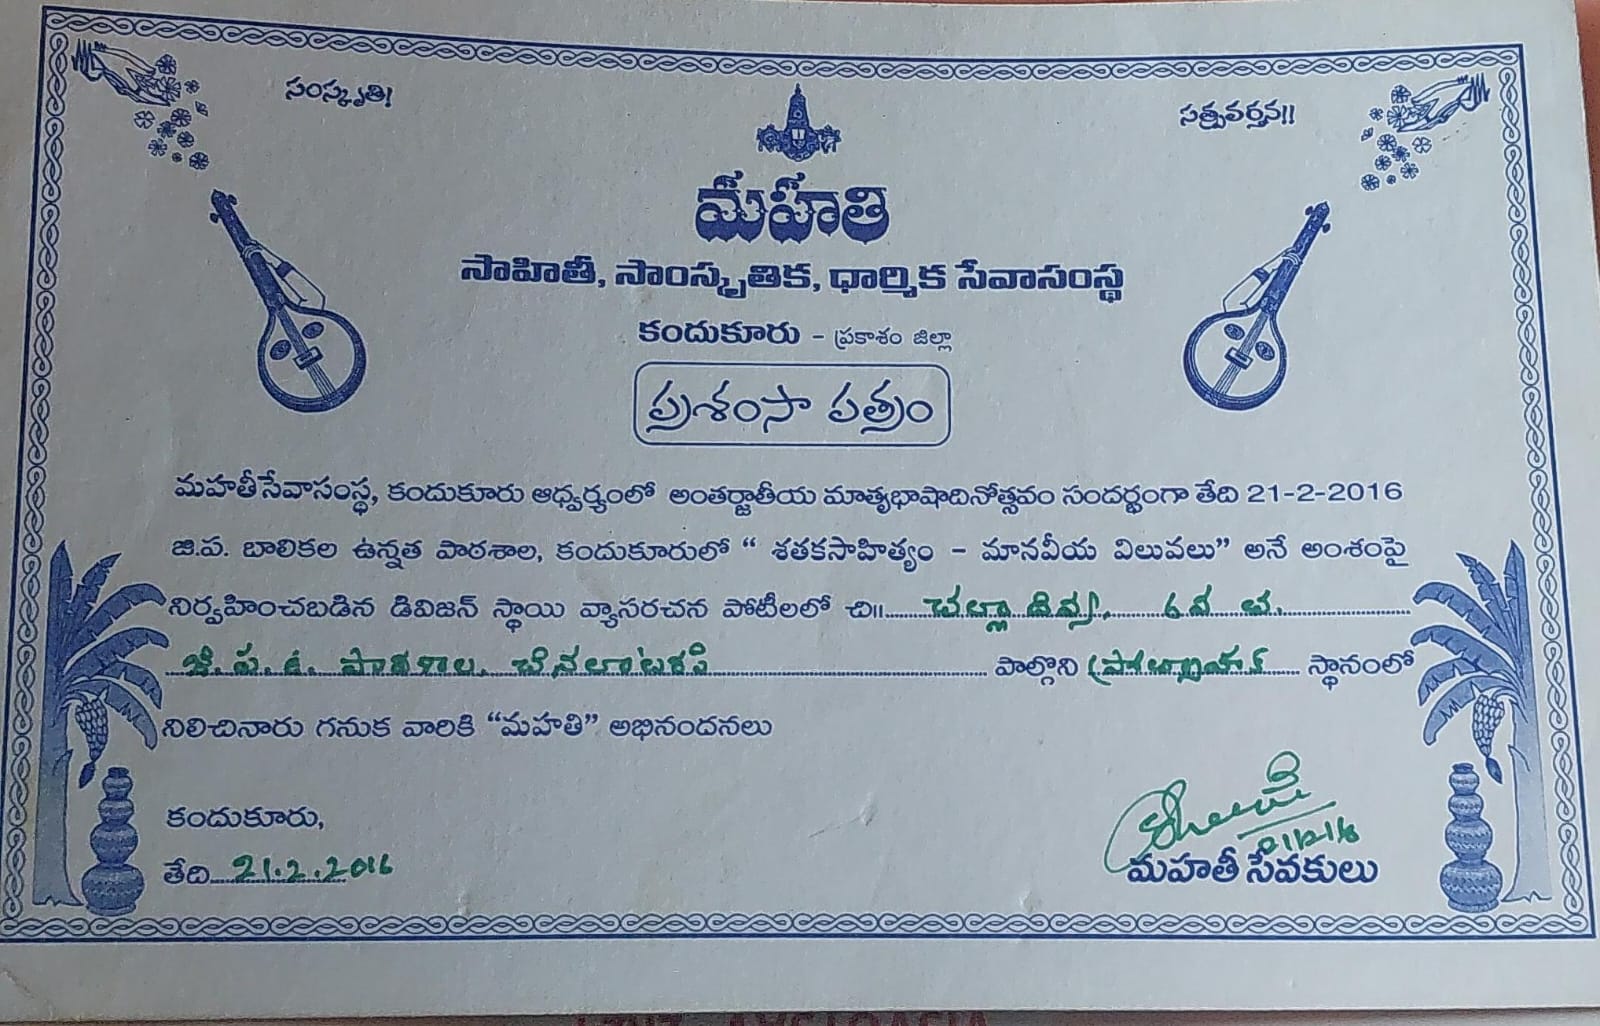 సంస్కృతి!
సత్ప్రవర్తన!!
మహతి
సాహితీ, సాంస్కృతిక, ధార్మిక సేవాసంస్థ
కందుకూరు - ప్రకాశం జిల్లా
ప్రశంసా పత్రం
మహతీసేవాసంస్థ, కందుకూరు ఆధ్వర్యంలో అంతర్జాతీయ మాతృభాషాదినోత్సవం సందర్భంగా తేది 21-2-2016
జి.ప. బాలికల ఉన్నత పాఠశాల, కందుకూరులో " శతకసాహిత్యం - మానవీయ విలువలు" అనే అంశంపై
నిర్వహించబడిన డివిజన్ స్థాయి వ్యాసరచన పోటీలలో చి॥ చల్లా దివ్య,
జి. ప. ఉ. పాఠశాల, పాల్గొని ప్రోత్సాహక స్థానంలో
నిలిచినారు గనుక వారికి "మహతి" అభినందనలు
కందుకూరు,
తేది 21.2.2016
21/2/16
మహతీ సేవకులు